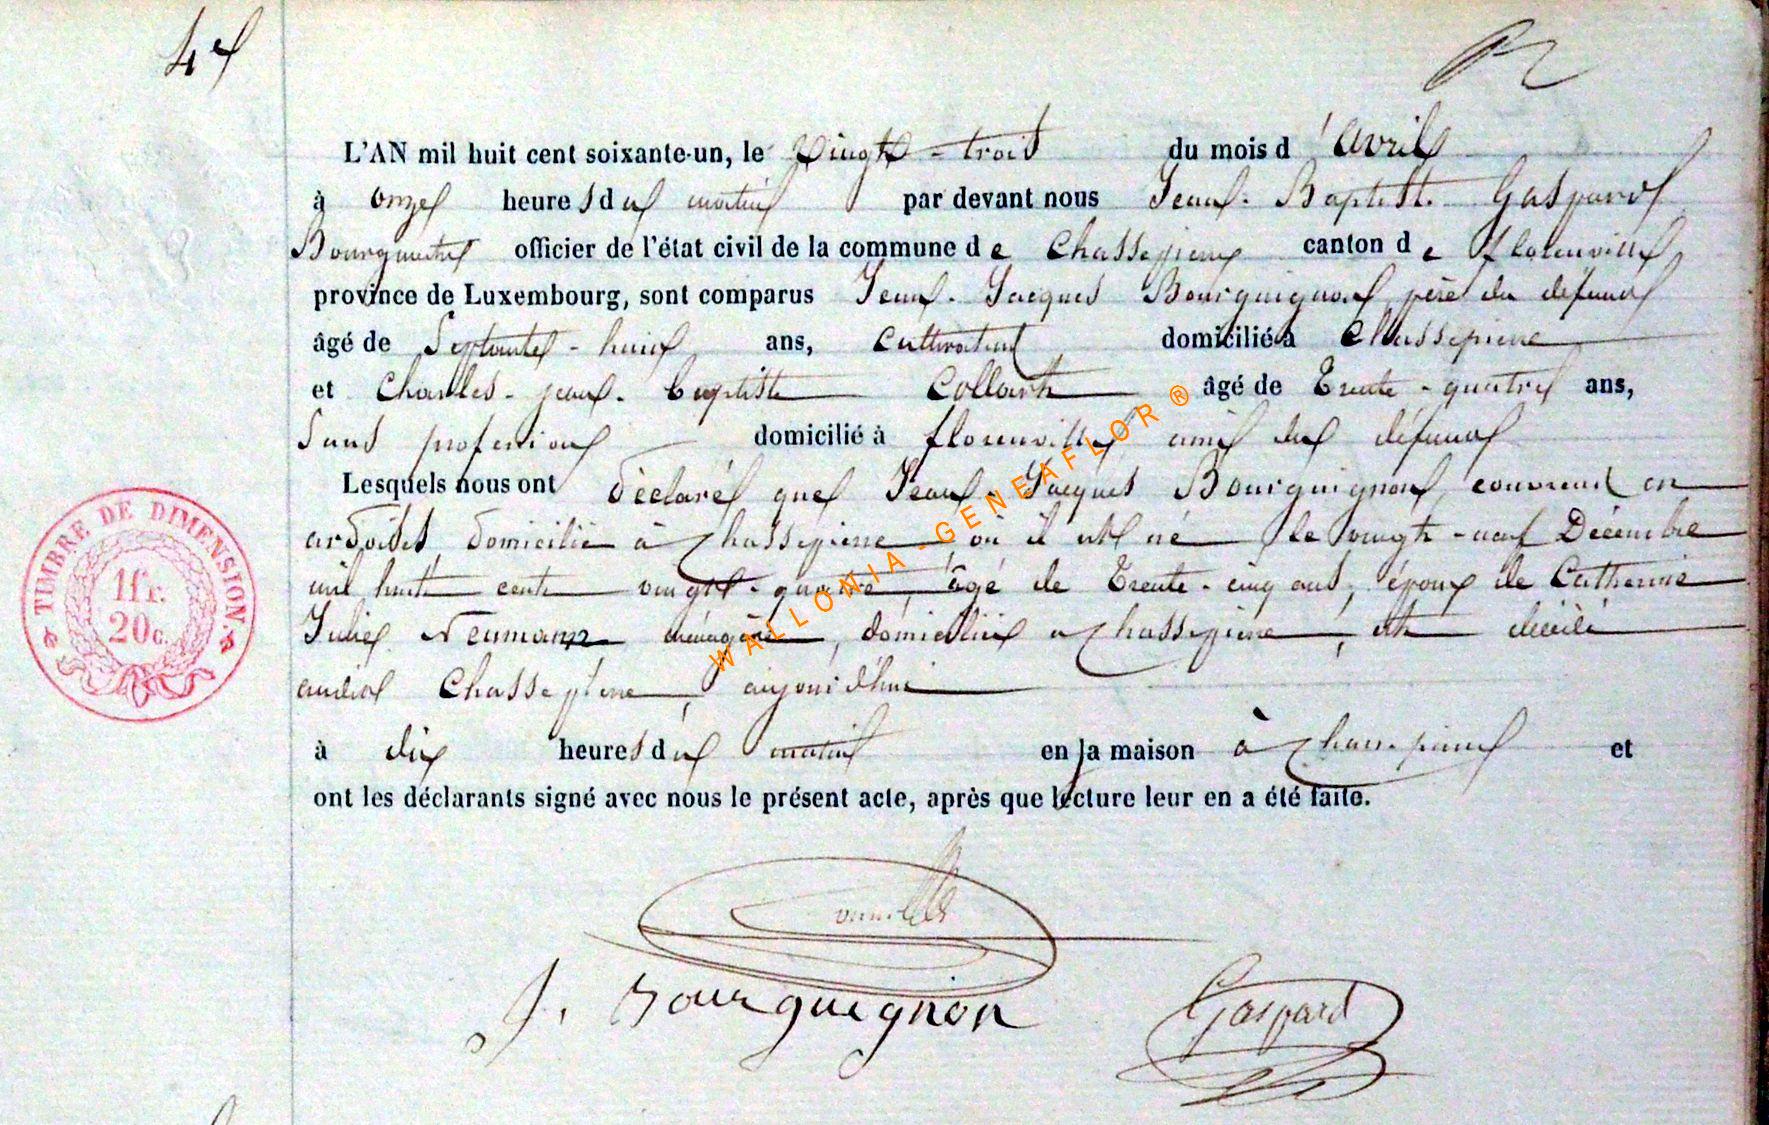 4e
L'AN mil huit cent soixante-un, le Vingt-trois du mois d'avril
à onze heures du matin par devant nous Jean-Baptiste Gaspard
Bourgmestre officier de l'état civil de la commune de Chassepierre canton de florenville
province de Luxembourg, sont comparus Jean-Jacques Bourguignon, père du défunt
âgé de Septante-huit ans, Cultivateur domicilié à Chassepierre
et Charles-jean-baptiste Collart âgé de Trente-quatre ans,
Sans profession domicilié à florenville ami du défunt
Lesquels nous ont déclaré que Jean-Jacques Bourguignon, couvreur en
ardoises, domicilié à Chassepierre, où il est né le vingt-neuf Décembre
mil huit cent vingt-quatre, âgé de Trente-cinq ans, époux de Catherine
Julie Neumann ménagère, domiciliée à Chassepierre, est décédé
audit Chassepierre, aujourd'hui
à dix heures du matin en la maison à Chassepierre et
ont les déclarants signé avec nous le présent acte, après que lecture leur en a été faite.
TIMBRE DE DIMENSION.
1fr.
20c.
WALLONIA-GENEAFLOR ®
J. Bourguignon
Gaspard